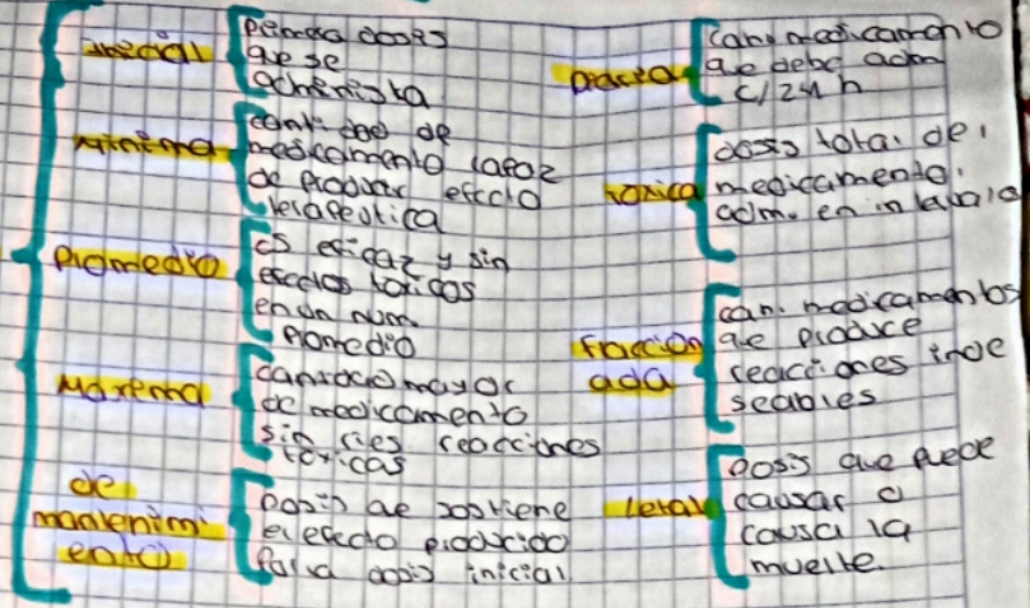 inicial
primera dosis
que se
administra
minima
cantidad de
medicamento capaz
de producir efecto
terapeutica
promedio
es eficaz y sin
efectos toxicos
en un num.
promedio
Maxima
cantidad mayor
de medicamento
sin reacciones
toxicas
de
mantenimi
ento
Dosis que sostiene
el efecto producido
dosis inicial
Diaria
can. medicamento
que debe adm
c/24 h
toxica
dosis total de
medicamento
adm. en
fraccion
ada
can. medicamentos
que produce
reacciones inde
seables
Letal
Dosis que puede
causar o
causa la
muerte.